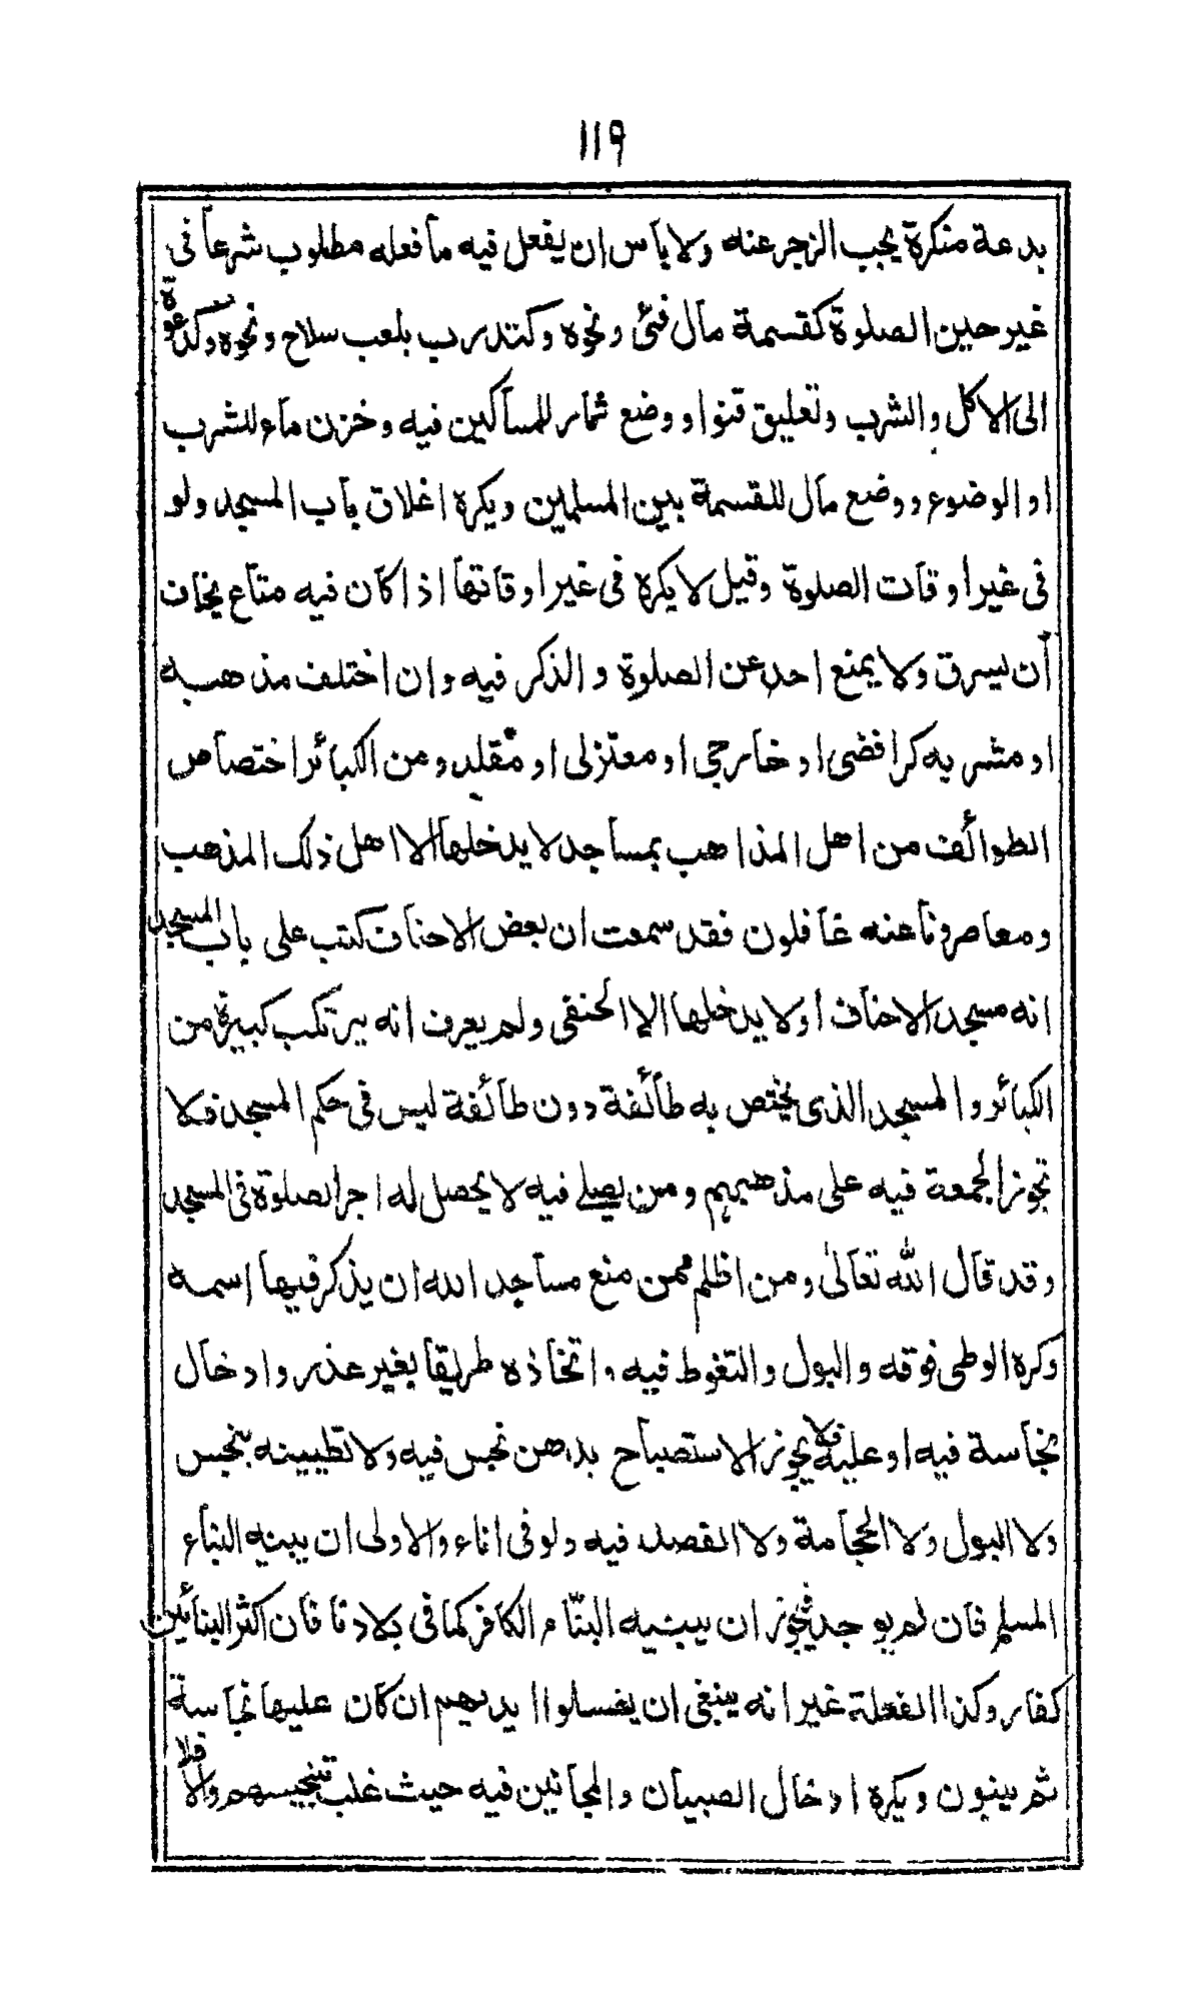 ١١٩
بدعة منكرة يجب الزجر عنه ولا باس ان يفعل فيه ما فعله مطلوب شرعا فى
غير حين الصلوة كقسمة مال فئى ونحوه وكتدرب بلعب سلاح ونحوه وكدعوة
الى الاكل والشرب وتعليق قنو او وضع ثمار للمساكين فيه وخزن ماء للشرب
او الوضوء ووضع مال للقسمة بين المسلمين ويكره اغلاق باب المسجد ولو
فى غير اوقات الصلوة وقيل لا يكره فى غير اوقاتها اذا كان فيه متاع يخاف
أن يسرق ولا يمنع احد عن الصلوة والذكر فيه وان اختلف مذهبه
او مشربه كرافضى او خارجى او معتزلى او مقلد ومن الكبائر اختصاص
الطوائف من اهل المذاهب بمساجد لا يدخلها الا اهل ذلك المذهب
ومعاصرونا عنه غافلون فقد سمعت ان بعض الاحناف كتب على باب المسجد
انه مسجد الاحناف او لا يدخلها الا الحنفى ولم يعرف انه يرتكب كبيرة من
الكبائر والمسجد الذى يختص به طائفة دون طائفة ليس فى حكم المسجد فلا
تجوز الجمعة فيه على مذهبهم ومن يصلے فيه لا يحصل له اجر الصلوة فى المسجد
وقد قال الله تعالى ومن اظلم ممن منع مساجد الله ان يذكر فيها اسمه
وكره الوطى فوقه والبول والتغوط فيه واتخاذه طريقا بغير عذر وادخال
نجاسة فيه او عليه فلا يجوز الاستصباح بدهن نجس فيه ولا تطيينه بنجس
ولا البول ولا الحجامة ولا الفصد فيه ولو فى اناء والاولى ان يبنيه البناء
المسلم فان لم يوجد فيجوز ان يبنيه البنّاء الكافر كما فى بلادنا فان اكثر البنائين
كفار وكذا الفعلة غير انه ينبغى ان يغسلوا ايديهم ان كان عليها نجاسة
ثم يبنون ويكره ادخال الصبيان والمجانين فيه حيث غلب تنجيسهم والا فلا